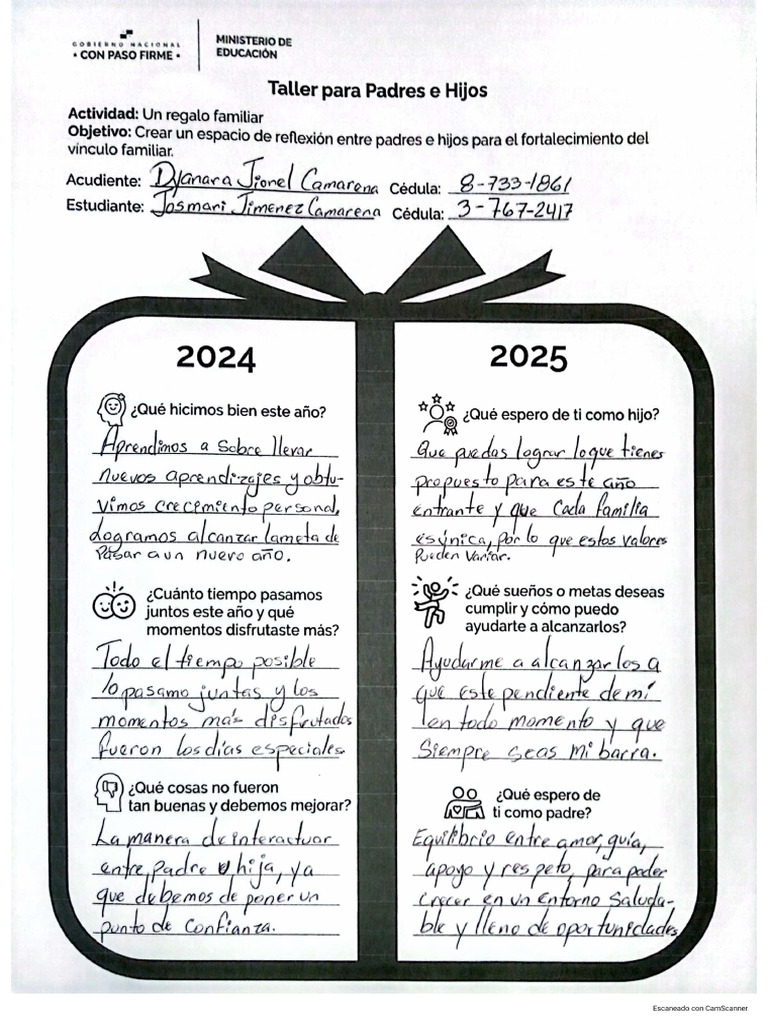 GOBIERNO NACIONAL
• CON PASO FIRME •
MINISTERIO DE
EDUCACIÓN
Taller para Padres e Hijos
Actividad: Un regalo familiar
Objetivo: Crear un espacio de reflexión entre padres e hijos para el fortalecimiento del
vínculo familiar.
Acudiente: Dyanara Jionel Camarena Cédula: 8-733-1861
Estudiante: Josmari Jimenez Camarena Cédula: 3-767-2417
2024
¿Qué hicimos bien este año?
Aprendimos a sobre llevar
nuevos aprendizajes y obtu-
vimos crecimiento personal,
Logramos alcanzar la meta de
pasar a un nuevo año.
¿Cuánto tiempo pasamos
juntos este año y qué
momentos disfrutaste más?
Todo el tiempo posible
lo pasamo juntas y los
momentos más disfrutados
fueron los días especiales.
¿Qué cosas no fueron
tan buenas y debemos mejorar?
La manera de interactuar
entre padre e hija, ya
que debemos de poner un
punto de confianza.
2025
¿Qué espero de ti como hijo?
Que puedas lograr lo que tienes
propuesto para este año
entrante y que cada familia
es única, por lo que estos valores
pueden variar.
¿Qué sueños o metas deseas
cumplir y cómo puedo
ayudarte a alcanzarlos?
Ayudarme a alcanzarlos a
que este pendiente de mí
en todo momento y que
siempre seas mi barra.
¿Qué espero de
ti como padre?
Equilibrio entre amor, guía,
apoyo y respeto, para poder
crecer en un entorno saluda-
ble y lleno de oportunidades
Escaneado con CamScanner